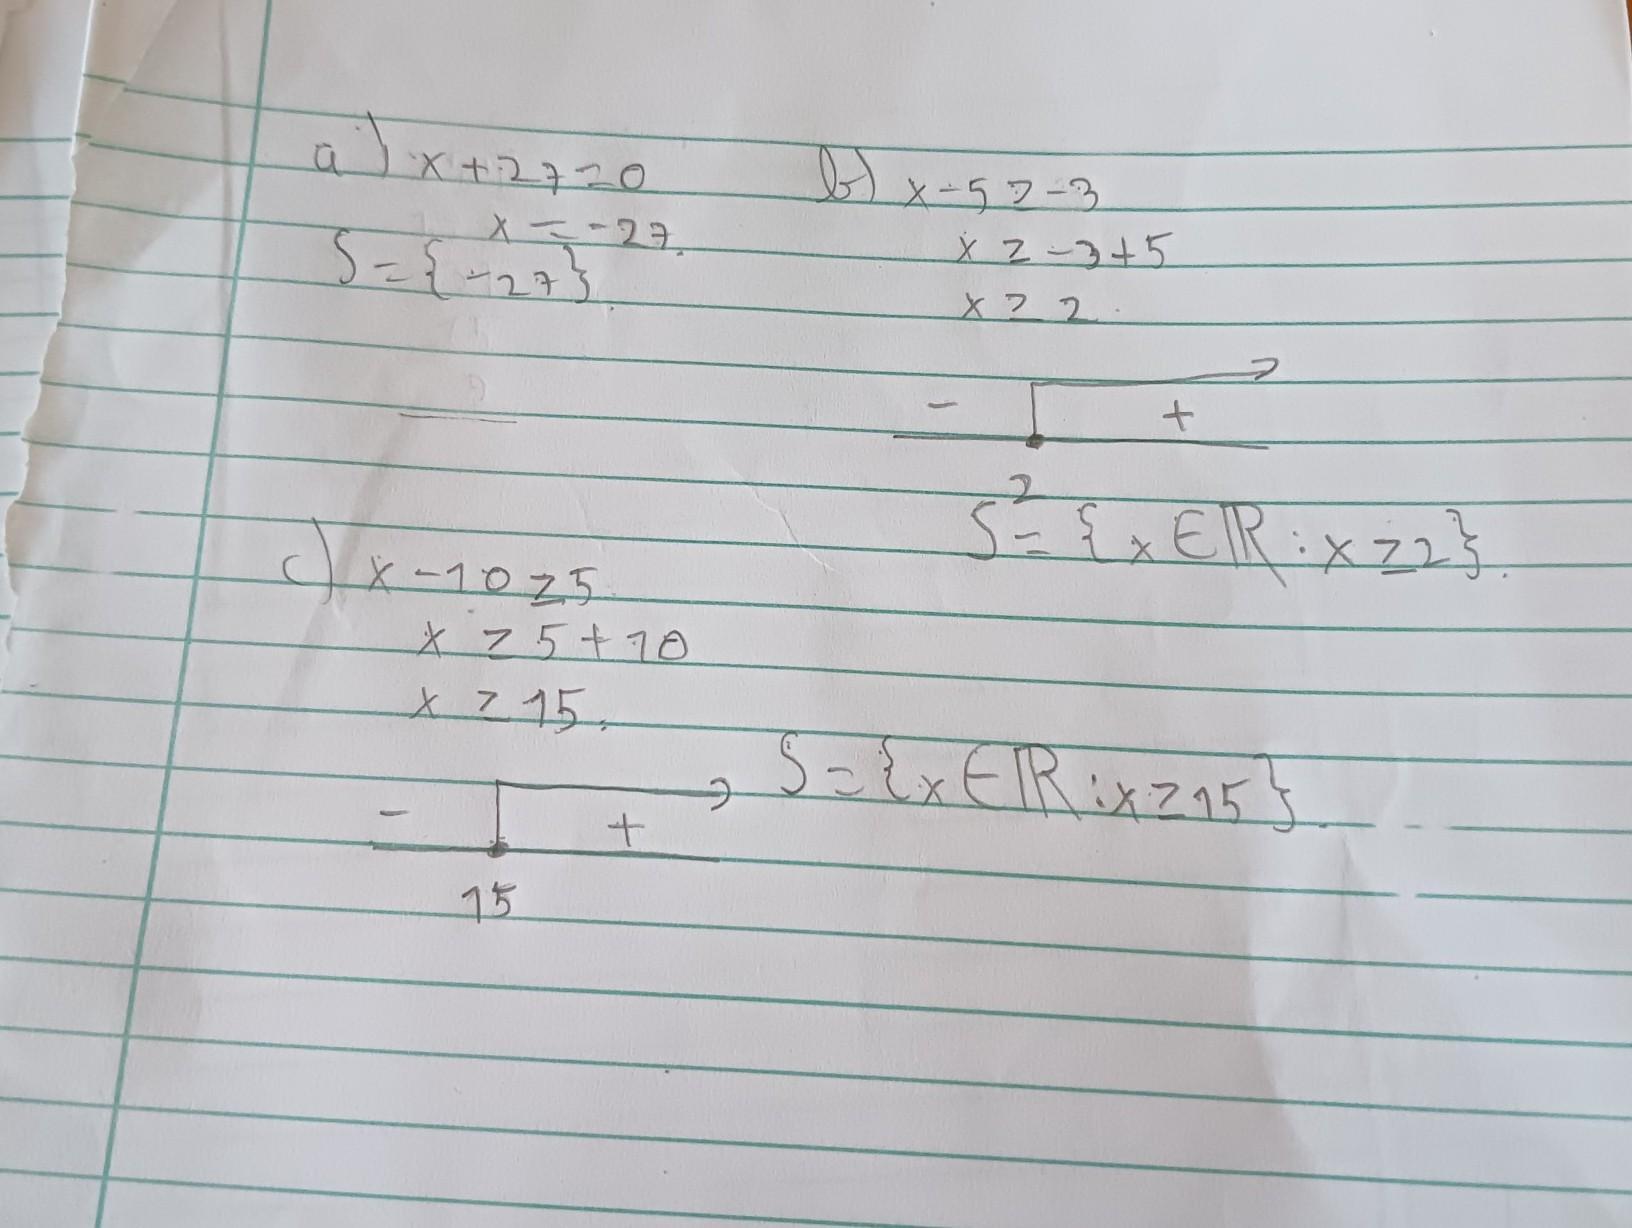 a) x+27=0
x=-27.
S={-27}.
b) x-5≥-3
x≥-3+5
x≥2.
- +
2
S={x∈ℝ:x≥2}.
c) x-10≥5
x≥5+10
x≥15.
- +
15
S={x∈ℝ:x≥15}.